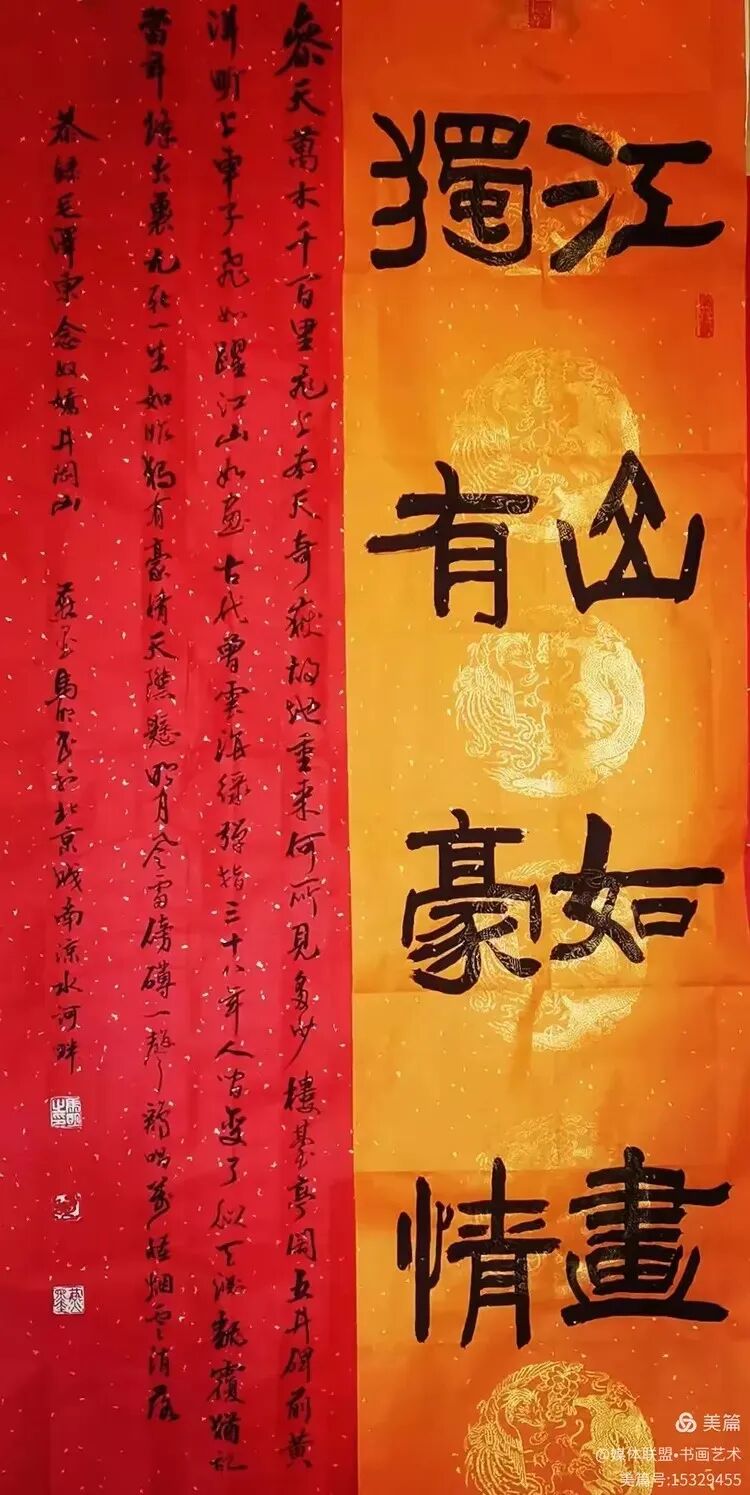 江山如畫
獨有豪情
參天萬木千百里飛上南天奇嶽故地重來何所見多少樓臺亭閣五井碑前黃
洋界上車子飛如躍江山如畫古代曾雲海綠彈指三十八年人間變了似天淵翻覆猶記
當年烽火裏九死一生如昨獨有豪情天際懸明月風雷磅礴一聲雞唱萬怪烟雲消落
恭錄毛澤東念奴嬌井岡山 馬 於北京城南涼水河畔
美篇
@媒体联盟•书画艺术
美篇号:15329455